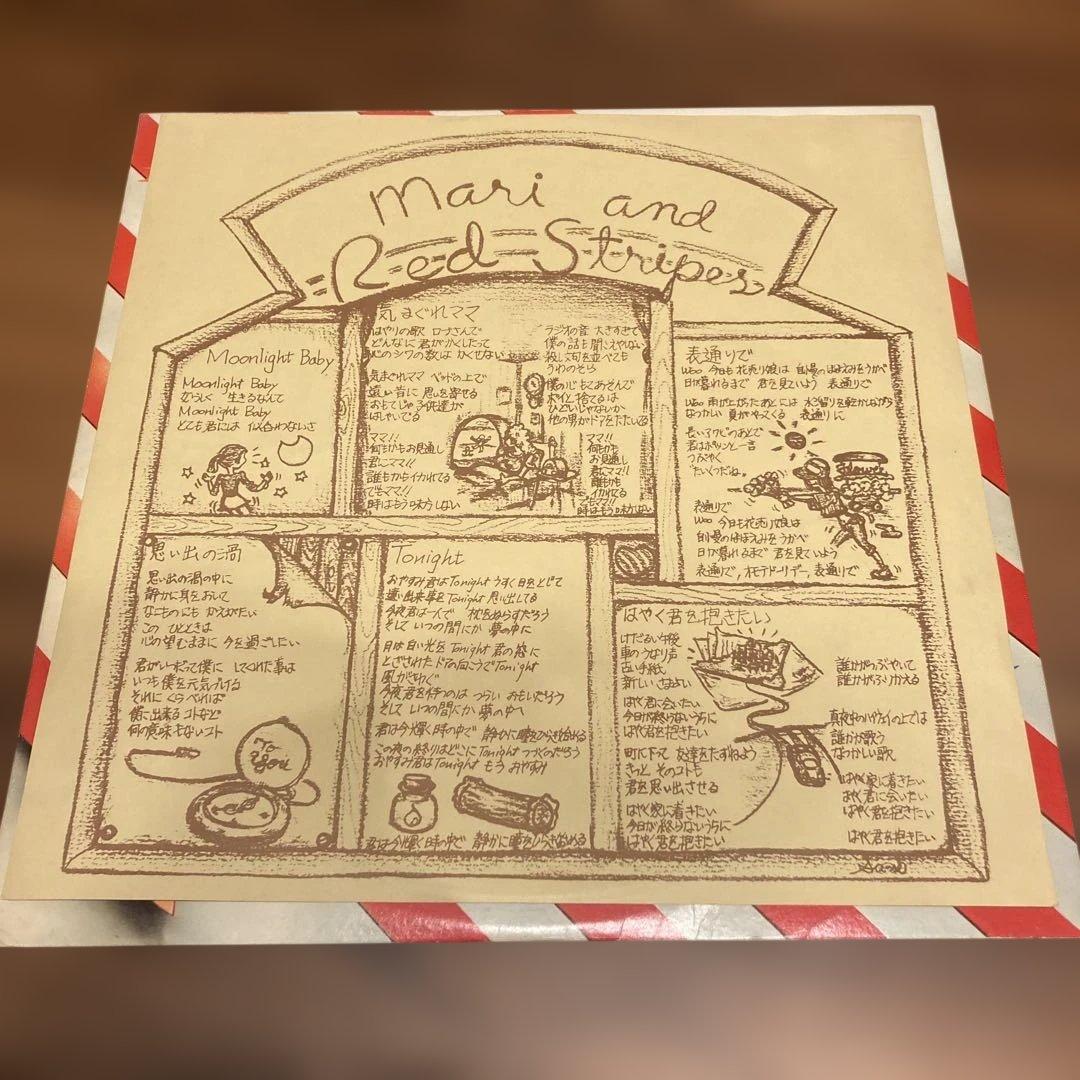 Mari and
Red Stripes
Moonlight Baby
Moonlight Baby
生きるなんて
Moonlight Baby
とても君には 似合わないさ
気まぐれママ
はやりの歌 ローナさんで
どんなに 君がかくしたって
心のシワの数は かくせない
気まぐれママ ベッドの上で
遠い昔に 思いを寄せる
おもてじゃ子供達が
はしゃいでる
ママ!!
何もかもお見通し
君にママ!!
誰もかもイカれてる
でもママ!!
時はもう味方しない
ラジオの音 大きすぎて
僕の話も聞こえやしない
殺し文句を並べても
うわのそら
僕の心 もてあそんで
ポイと捨てるは
ひどいじゃないか
他の男がドアをたたいてる
ママ!!
何もかも
お見通し
君にママ!!
誰もかも
イカれてる
でもママ!!
時はもう味方しない
表通りで
Woo 今日も花売り娘は 自慢のほほえみをうかべ
日が暮れるまで 君を見ていよう 表通りで
Woo 雨が上がったあとには 水溜りを転がしながら
なつかしい 夏がやってくる 表通りに
長いアクビのあとで
君はポツンと一言
つぶやく
たいくつだね。
Flower
表通りで
Woo 今日も花売り娘は
自慢のほほえみをうかべ
日が暮れるまで 君を見ていよう
表通りで, オモテドーリデー, 表通りで
思い出の渦
思い出の渦の中に
静かに身をおいて
なにものにも かえがたい
この ひとときは
心の望むままに 今を過ごしたい
君がいきって僕に してくれた事は
いつも僕を元気づける
それに くらべれば
街に出来る コトなど
何の意味もないコト
To You
Tonight
おやすみ君はTonight うすく目をとじて
遠い出来事をTonight 思い出してる
今夜君は一人で 枕をぬらすだろう
そして いつの間にか 夢の中に
月は白い光を Tonight 君の窓に
とざされた ドアの向こうで Tonight
風がさわぐ
今夜君を待つのは つらい おもいだろう
そして いつの間にか 夢の中へ
君は今輝く時の中で 静かに瞳をひらき始める
この夜の終りはどこに Tonight つづくのだろう
おやすみ君は Tonight もう おやすみ
君は今輝く時の中で 静かに瞳をひらき始める
はやく君を抱きたい
けだるい午後
車のうなり声
古い手紙
新しいさよなら
はやく君に会いたい
今日が終らないうちに
はやく君を抱きたい
町に下って 友達をたずねよう
きっと そのコトも
君を思い出させる
はやく家に着きたい
今日が終らないうちに
はやく君を抱きたい
誰かがつぶやいて
誰かがふりかえる
真夜中のハイウェイの上では
誰かが歌う
なつかしい歌
はやく家に着きたい
はやく君に会いたい
はやく君を抱きたい
はやく君を抱きたい